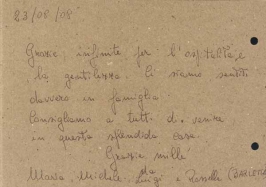 23/08/08
Grazie infinite per l'ospitalità e
la gentilezza. Ci siamo sentiti
davvero in famiglia.
Consigliamo a tutti di venire
in questa splendida casa.
Grazie mille
Maria, Michele Luigi e Rossella (BARLETTA